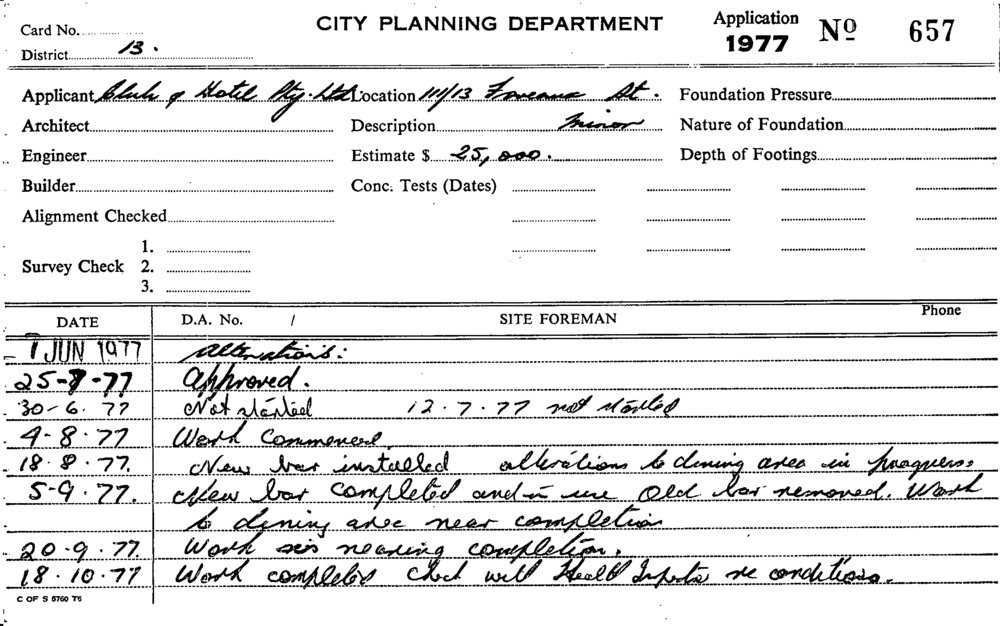 Card No.
CITY PLANNING DEPARTMENT
Application 1977 Nº 657
District 13.
Applicant Club & Hotel Pty. Ltd Location 111/13 Foveaux St. Foundation Pressure
Architect Description minor Nature of Foundation
Engineer Estimate $ 25,000. Depth of Footings
Builder Conc. Tests (Dates)
Alignment Checked
1.
Survey Check 2.
3.
DATE D.A. No. / SITE FOREMAN Phone
1 JUN 1977 Alterations:
25-8-77 Approved.
30-6.77 Not started 12.7.77 not started
4-8.77 Work Commenced
18.8.77. New bar installed alterations to dining area in progress.
5-9.77. New bar completed and in use Old bar removed. Work
to dining area near completion
20.9.77. Work nearing completion.
18.10.77 Work completed check with Health Inspector re conditions.
C OF S 5760 T6